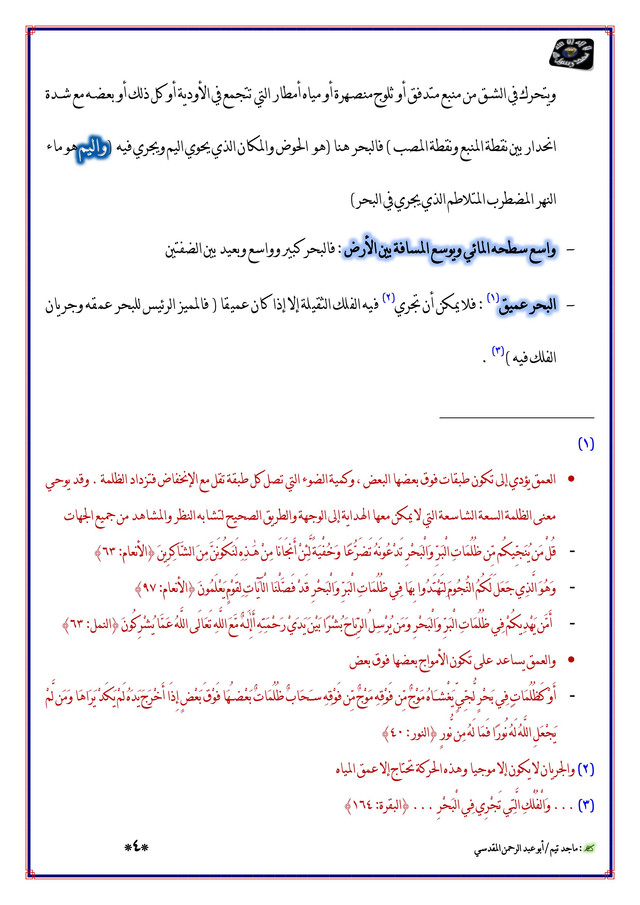 ويتحرك في الشق من منبع متدفق أو ثلوج منصهرة أو مياه أمطار التي تتجمع في الأودية أو كل ذلك أو بعضه مع شدة
انحدار بين نقطة المنبع ونقطة المصب ) فالبحر هنا (هو الحوض والمكان الذي يحوي اليم ويجري فيه (واليم هو ماء
النهر المضطرب المتلاطم الذي يجري في البحر)
– واسع سطحه المائي ويوسع المسافة بين الأرض : فالبحر كبير وواسع وبعيد بين الضفتين
– البحر عميق(١) : فلا يمكن أن تجري(٢) فيه الفلك الثقيلة إلا إذا كان عميقا ( فالمميز الرئيس للبحر عمقه وجريان
الفلك فيه )(٣) .
(١)
• العمق يؤدي إلى تكون طبقات فوق بعضها البعض ، وكمية الضوء التي تصل كل طبقة تقل مع الإنخفاض فتزداد الظلمة . وقد يوحي
معنى الظلمة السعة الشاسعة التي لا يمكن معها الهداية إلى الوجهة والطريق الصحيح لتشابه النظر والمشاهد من جميع الجهات
- قُلْ مَن يُنَجِّيكُم مِّن ظُلُمَاتِ الْبَرِّ وَالْبَحْرِ تَدْعُونَهُ تَضَرُّعًا وَخُفْيَةً لَّئِنْ أَنجَانَا مِنْ هَٰذِهِ لَنَكُونَنَّ مِنَ الشَّاكِرِينَ ﴿الأنعام: ٦٣﴾
- وَهُوَ الَّذِي جَعَلَ لَكُمُ النُّجُومَ لِتَهْتَدُوا بِهَا فِي ظُلُمَاتِ الْبَرِّ وَالْبَحْرِ قَدْ فَصَّلْنَا الْآيَاتِ لِقَوْمٍ يَعْلَمُونَ ﴿الأنعام: ٩٧﴾
- أَمَّن يَهْدِيكُمْ فِي ظُلُمَاتِ الْبَرِّ وَالْبَحْرِ وَمَن يُرْسِلُ الرِّيَاحَ بُشْرًا بَيْنَ يَدَيْ رَحْمَتِهِ أَإِلَٰهٌ مَّعَ اللَّهِ تَعَالَى اللَّهُ عَمَّا يُشْرِكُونَ ﴿النمل: ٦٣﴾
• والعمق يساعد على تكون الأمواج بعضها فوق بعض
- أَوْ كَظُلُمَاتٍ فِي بَحْرٍ لُّجِّيٍّ يَغْشَاهُ مَوْجٌ مِّن فَوْقِهِ مَوْجٌ مِّن فَوْقِهِ سَحَابٌ ظُلُمَاتٌ بَعْضُهَا فَوْقَ بَعْضٍ إِذَا أَخْرَجَ يَدَهُ لَمْ يَكَدْ يَرَاهَا وَمَن لَّمْ
يَجْعَلِ اللَّهُ لَهُ نُورًا فَمَا لَهُ مِن نُّورٍ ﴿النور: ٤٠﴾
(٢) والجريان لا يكون إلا موجيا وهذه الحركة تحتاج إلا عمق المياه
(٣) . . . وَالْفُلْكِ الَّتِي تَجْرِي فِي الْبَحْرِ . . . ﴿البقرة: ١٦٤﴾
: ماجد تيم / أبو عبد الرحمن المقدسي *٤*